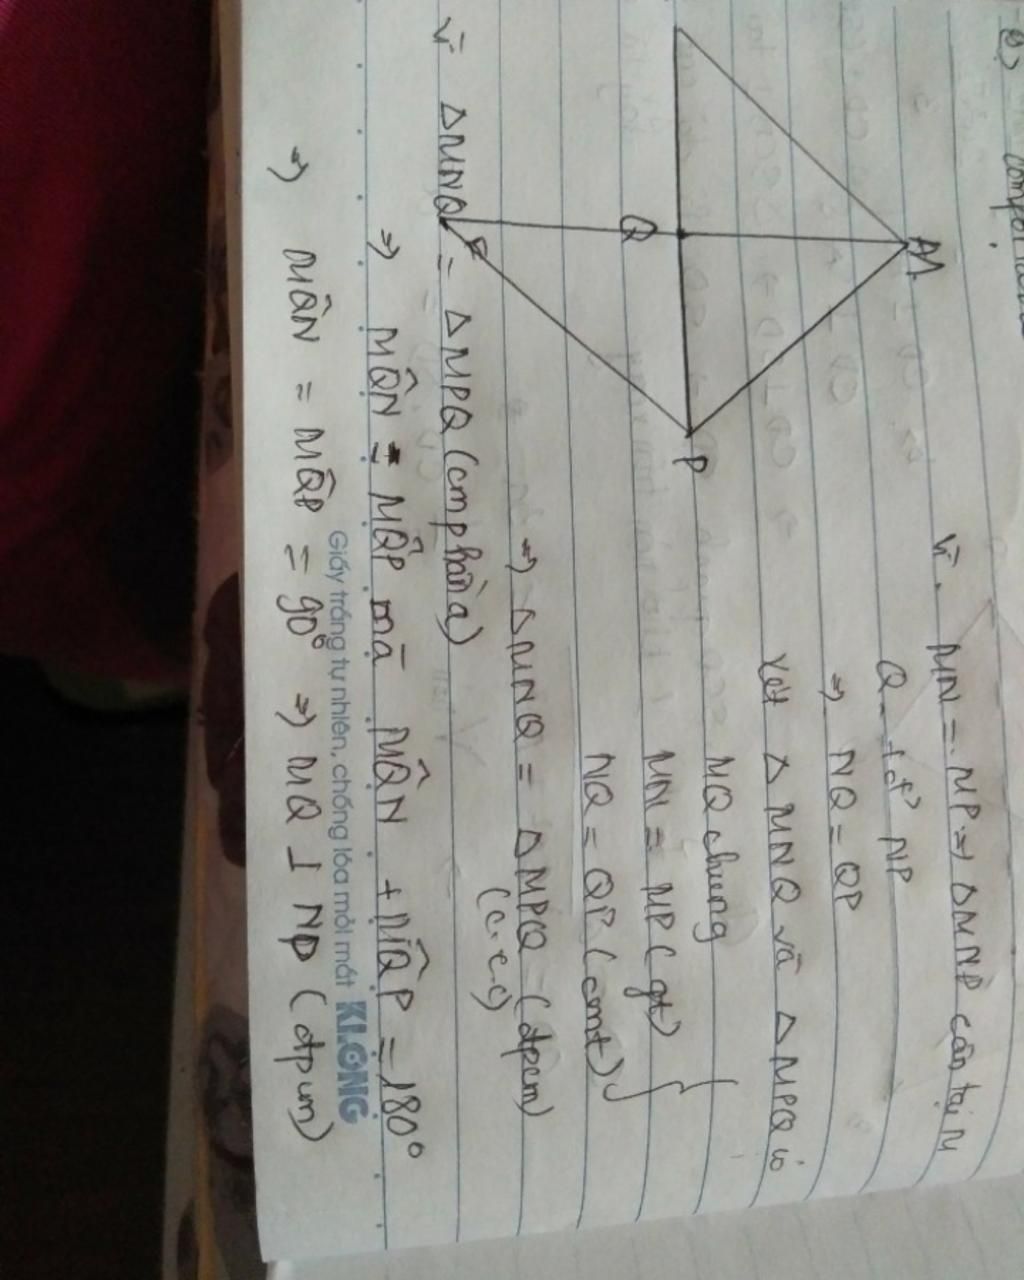 M
Q
P
Vì MN = MP ⇒ ΔMNP cân tại M
NP
⇒ NQ = QP
Xét Δ MNQ và Δ MPQ có
MQ chung
MN = MP (gt)
NQ = QP (cmt)
⇒ ΔMNQ = ΔMPQ (đpcm)
(c.c.c)
Vì ΔMNQ = ΔMPQ (cm phần a)
⇒ MQ̂N = MQ̂P mà MQ̂N + MQ̂P = 180°
⇒ MQ̂N = MQ̂P = 90° ⇒ MQ ⊥ NP (đpcm)
Giấy trắng tự nhiên, chống lóa mỏi mắt KLONG